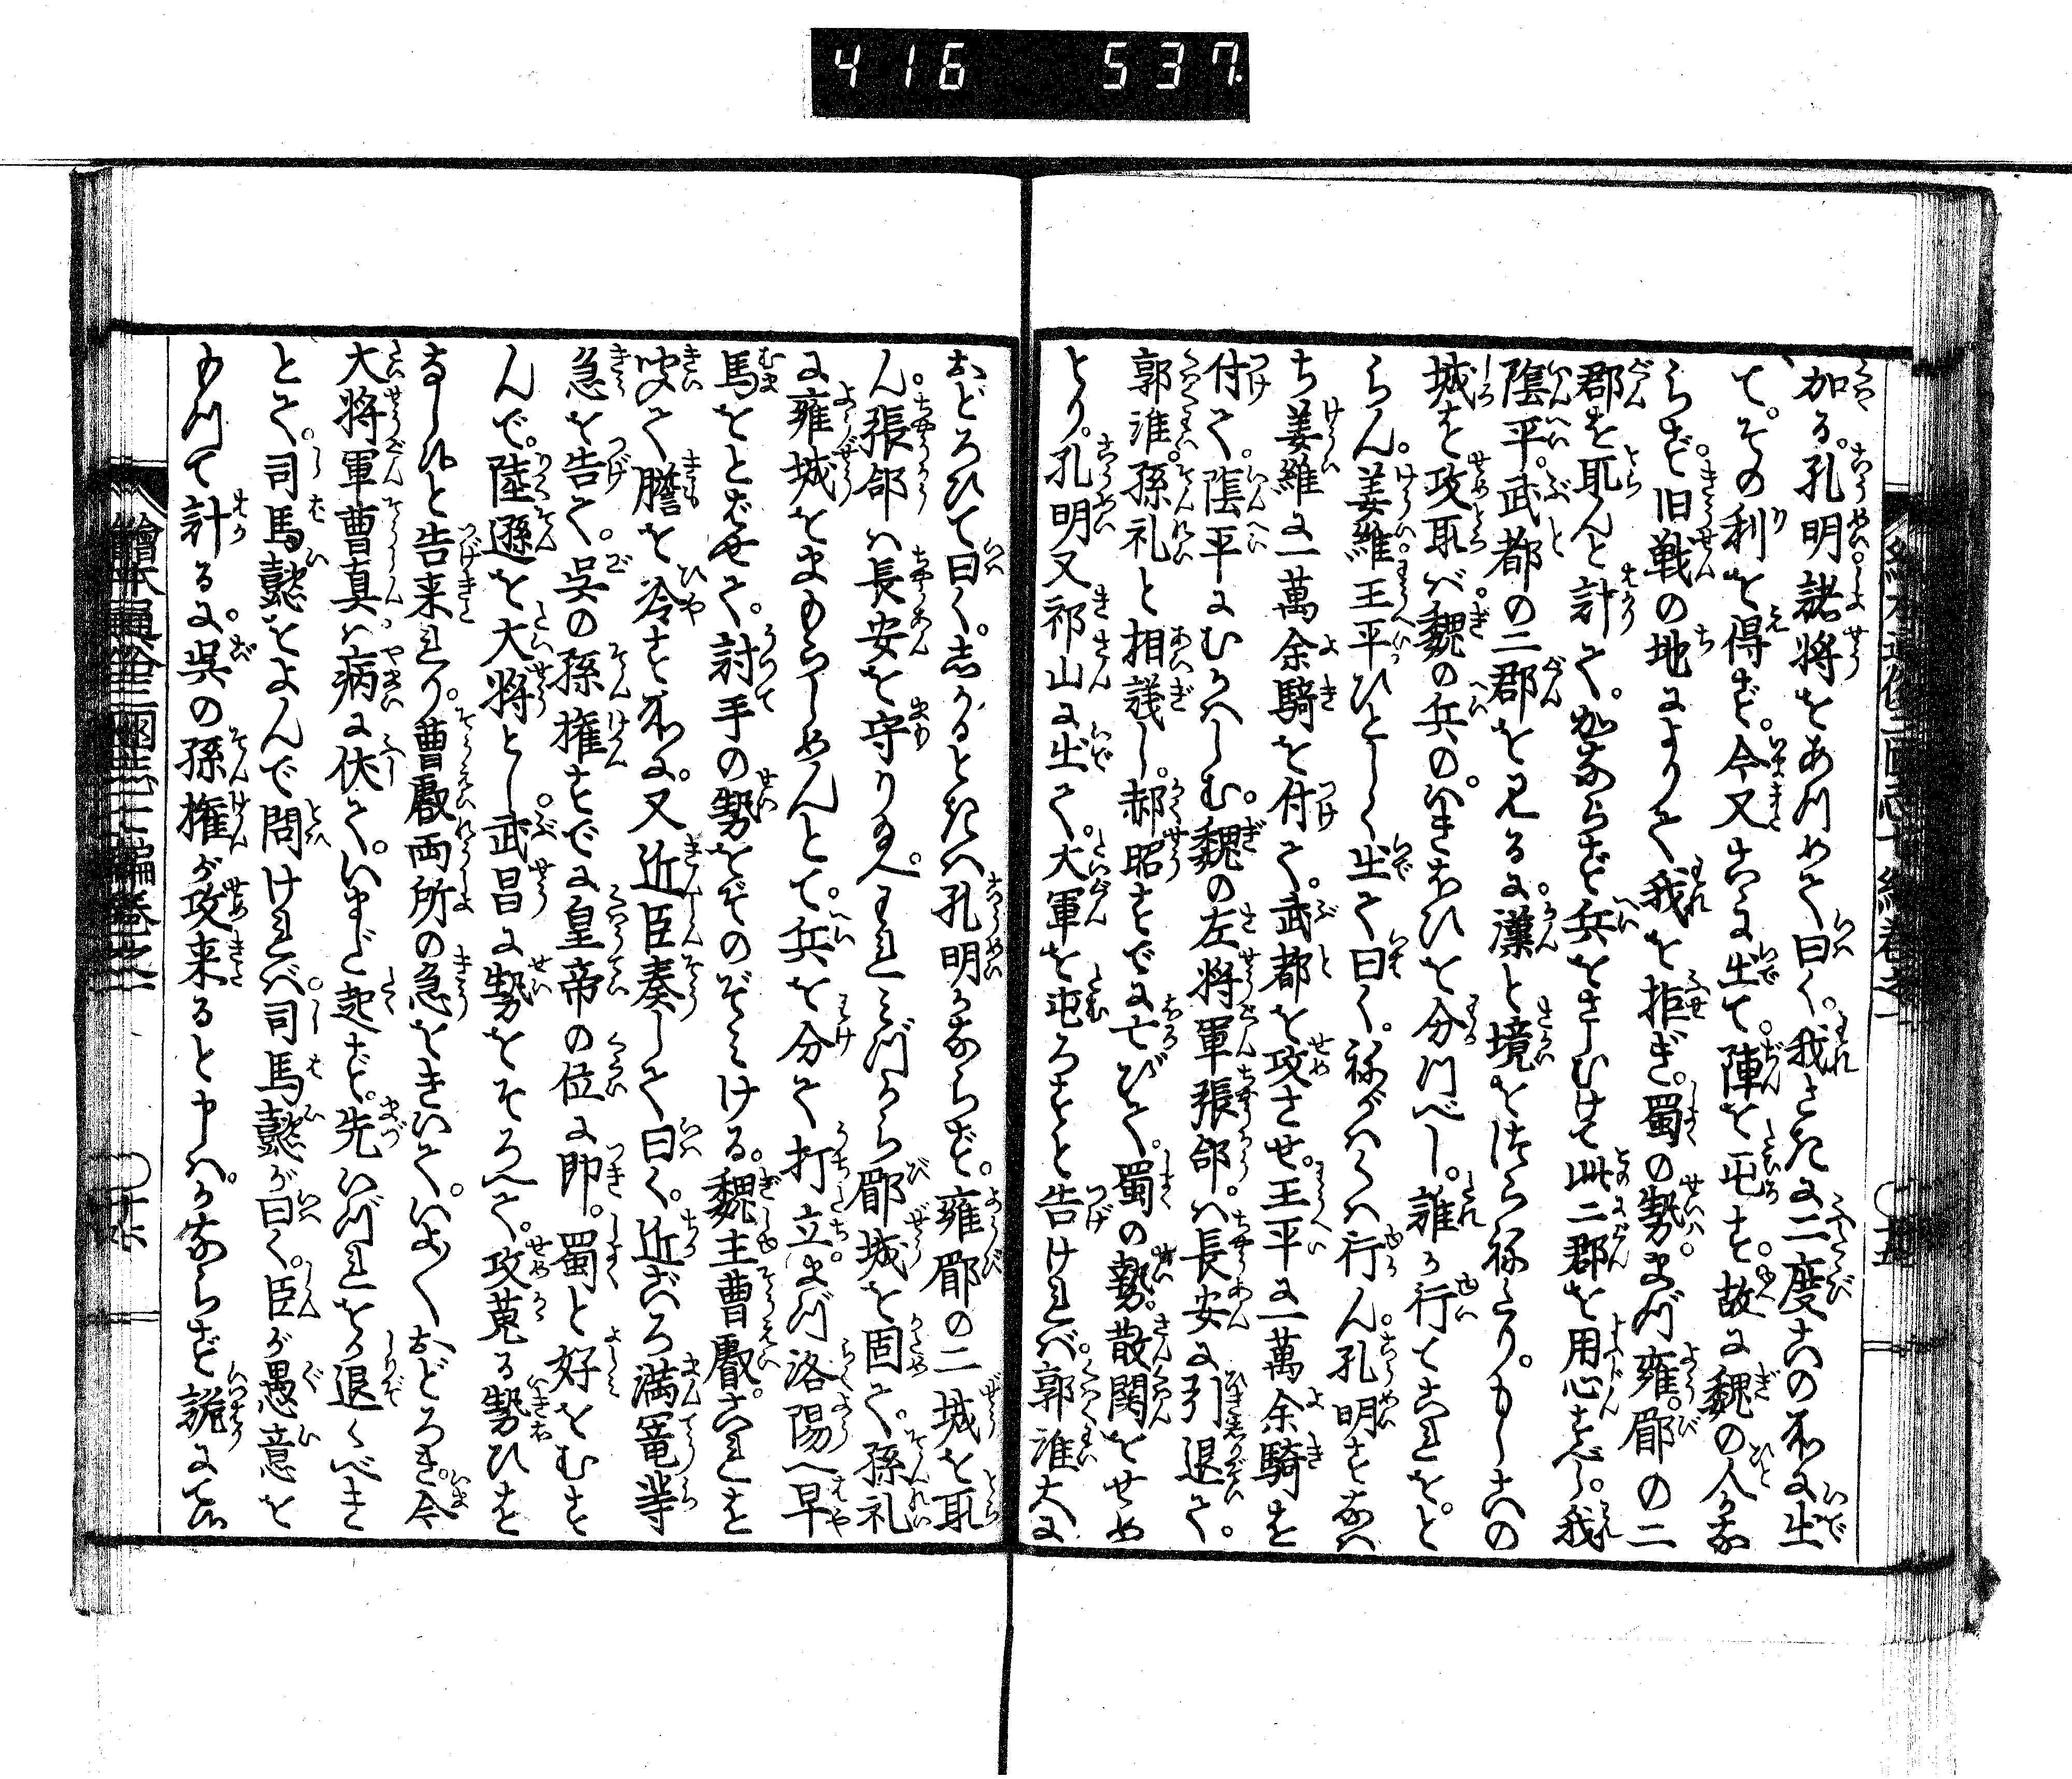 416 537
加る。孔明諸将をあつめて曰く。我さきに二度此の所に出
て。その利を得ず。今又こゝに出て。陣を屯す。故に魏の人かな
らず旧戦の地によりて我を拒ぎ。蜀の勢まづ雍。郿の二
郡を取んと計て。かならず兵をさしむけて此二郡を用心すべし。我
陰平。武都の二郡を見るに。漢と境をつらねたり。もし此の
城を攻取ば。魏の兵の。いきおひを分つべし。誰か行てこれをと
らん。姜維。王平ひとしく出て曰く。ねがはくは行ん。孔明すなは
ち姜維に一萬余騎を付て。武都を攻させ。王平に一萬余騎を
付て。陰平にむかはしむ。魏の左将軍張郃。は長安に引退て。
郭淮。孫礼と相議し。郝昭すでに亡びて。蜀の勢。散関をせめ
とり。孔明又祁山に出て。大軍を屯ろすと告ければ。郭淮大に
おどろひて曰く。しかるときは孔明かならず。雍郿の二城を取
ん。張郃は長安を守り給へ。われみづから郿城を固て。孫礼
に雍城をまもらしめんとて。兵を分て打立。まづ洛陽へ早
馬をとばせて。討手の勢をぞのぞみける。魏主曹叡。これを
聞て膽を冷す所に。又近臣奏して曰く。近ごろ満寵等
急を告て。呉の孫権すでに皇帝の位に即。蜀と好をむす
んで。陸遜を大将とし。武昌に勢をそろへて。攻蒐る勢ひを
なし候と告来れり。曹叡両所の急をきいて。いよ〱おどろき。今
大将軍曹真は病に伏て。いまだ起ず。先いづれをか退くべき
とて。司馬懿をよんで問ければ。司馬懿が曰く。臣が愚意を
もつて計るに。呉の孫権が攻来ると申は。かならず詭にてい
繪本通俗三國志七編巻之一